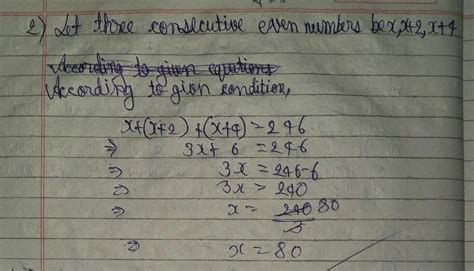 2) Let three consecutive even numbers be x, x+2, x+4
According to given equations
According to given condition,
x+(x+2)+(x+4)=246
⇒ 3x+6=246
⇒ 3x=246-6
⇒ 3x=240
⇒ x= 240/3 80
⇒ x=80